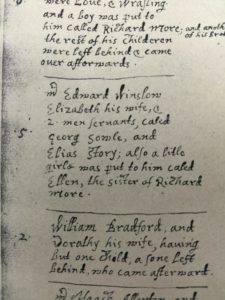 were Love, & Wrasling
and a boy was put to
him caled Richard More; and another
of his brothers
the rest of his Childeren
were left behind & came
over afterwards.
Mr Edward Winslow
Elizabeth his wife, &
5. 2. men servants, caled
Georg Sowle, and
Elias Story; also a litle
girle was put to him caled
Ellen, the sister of Richard
More.
William Bradford, and
2. Dorathy his wife, having
but one child, a sone left
behind, who came afterward.